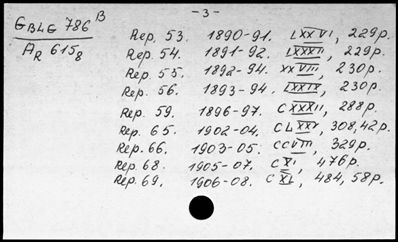 - 3 -
GBLG 786 B
AR 615 8
Rep. 53. 1890-91. LXXVI, 229p.
Rep. 54. 1891-92. LXXXII, 229p.
Rep. 55. 1892-94. XXVIII, 230p.
Rep. 56. 1893-94. LXXIX, 230p.
Rep. 59. 1896-97. CXXXII, 288p.
Rep. 65. 1902-04. CLXXV, 308,42p.
Rep. 66. 1903-05. CCVIII, 329p.
Rep. 68. 1905-07. CXI, 476p.
Rep. 69. 1906-08. CXL, 484, 58p.